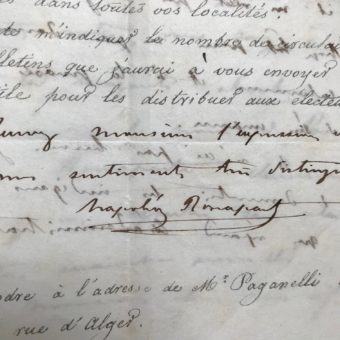 dans toutes vos localités.
m'indiquer le nombre de circulai
lletins que j'aurai à vous envoyer
ile pour les distribuer aux electeu
monsieur l'expression
sentiment très distingu
Napoléon Bonaparte
ndre à l'adresse de Mr. Paganelli
rue d'Alger.